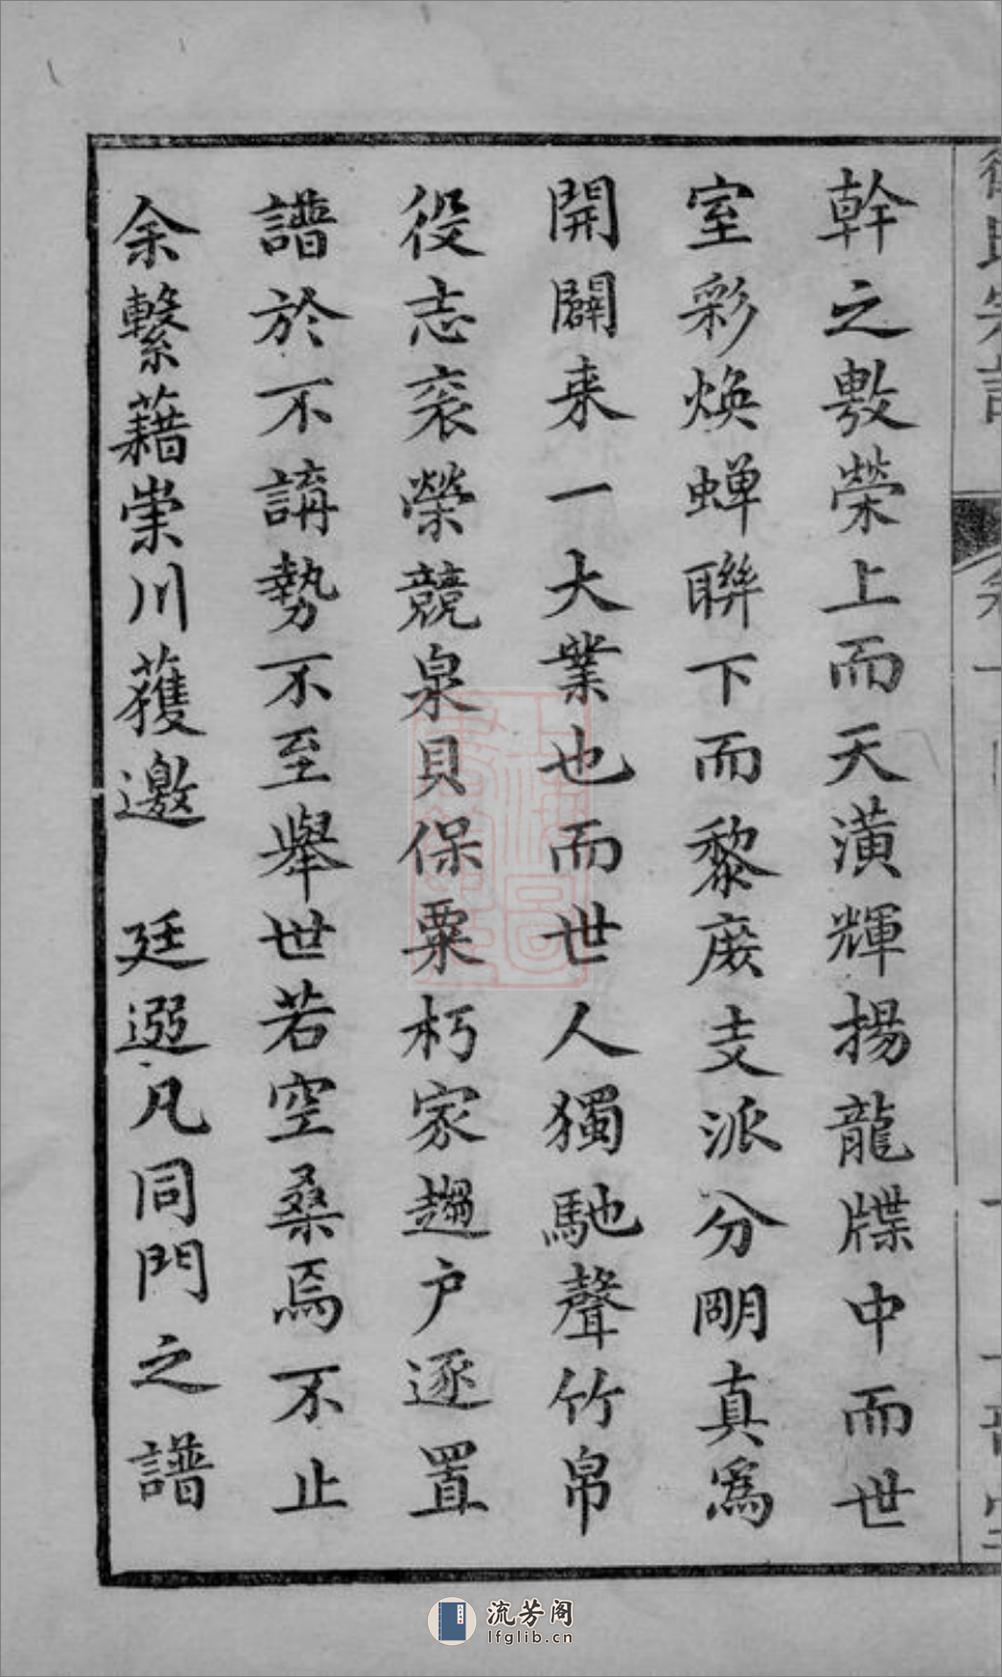 幹之敷榮上而天潢輝揚龍牒中而世
室彩煥蟬聯下而黎庶支派分明真爲
開闢来一大業也而世人獨馳聲竹帛
役志衮榮競泉貝保粟朽家趨户逐置
譜於不講勢不至舉世若空桑焉不止
余繫藉崇川獲邀 廷遴凡同門之譜
流芳阁
lfglib.cn